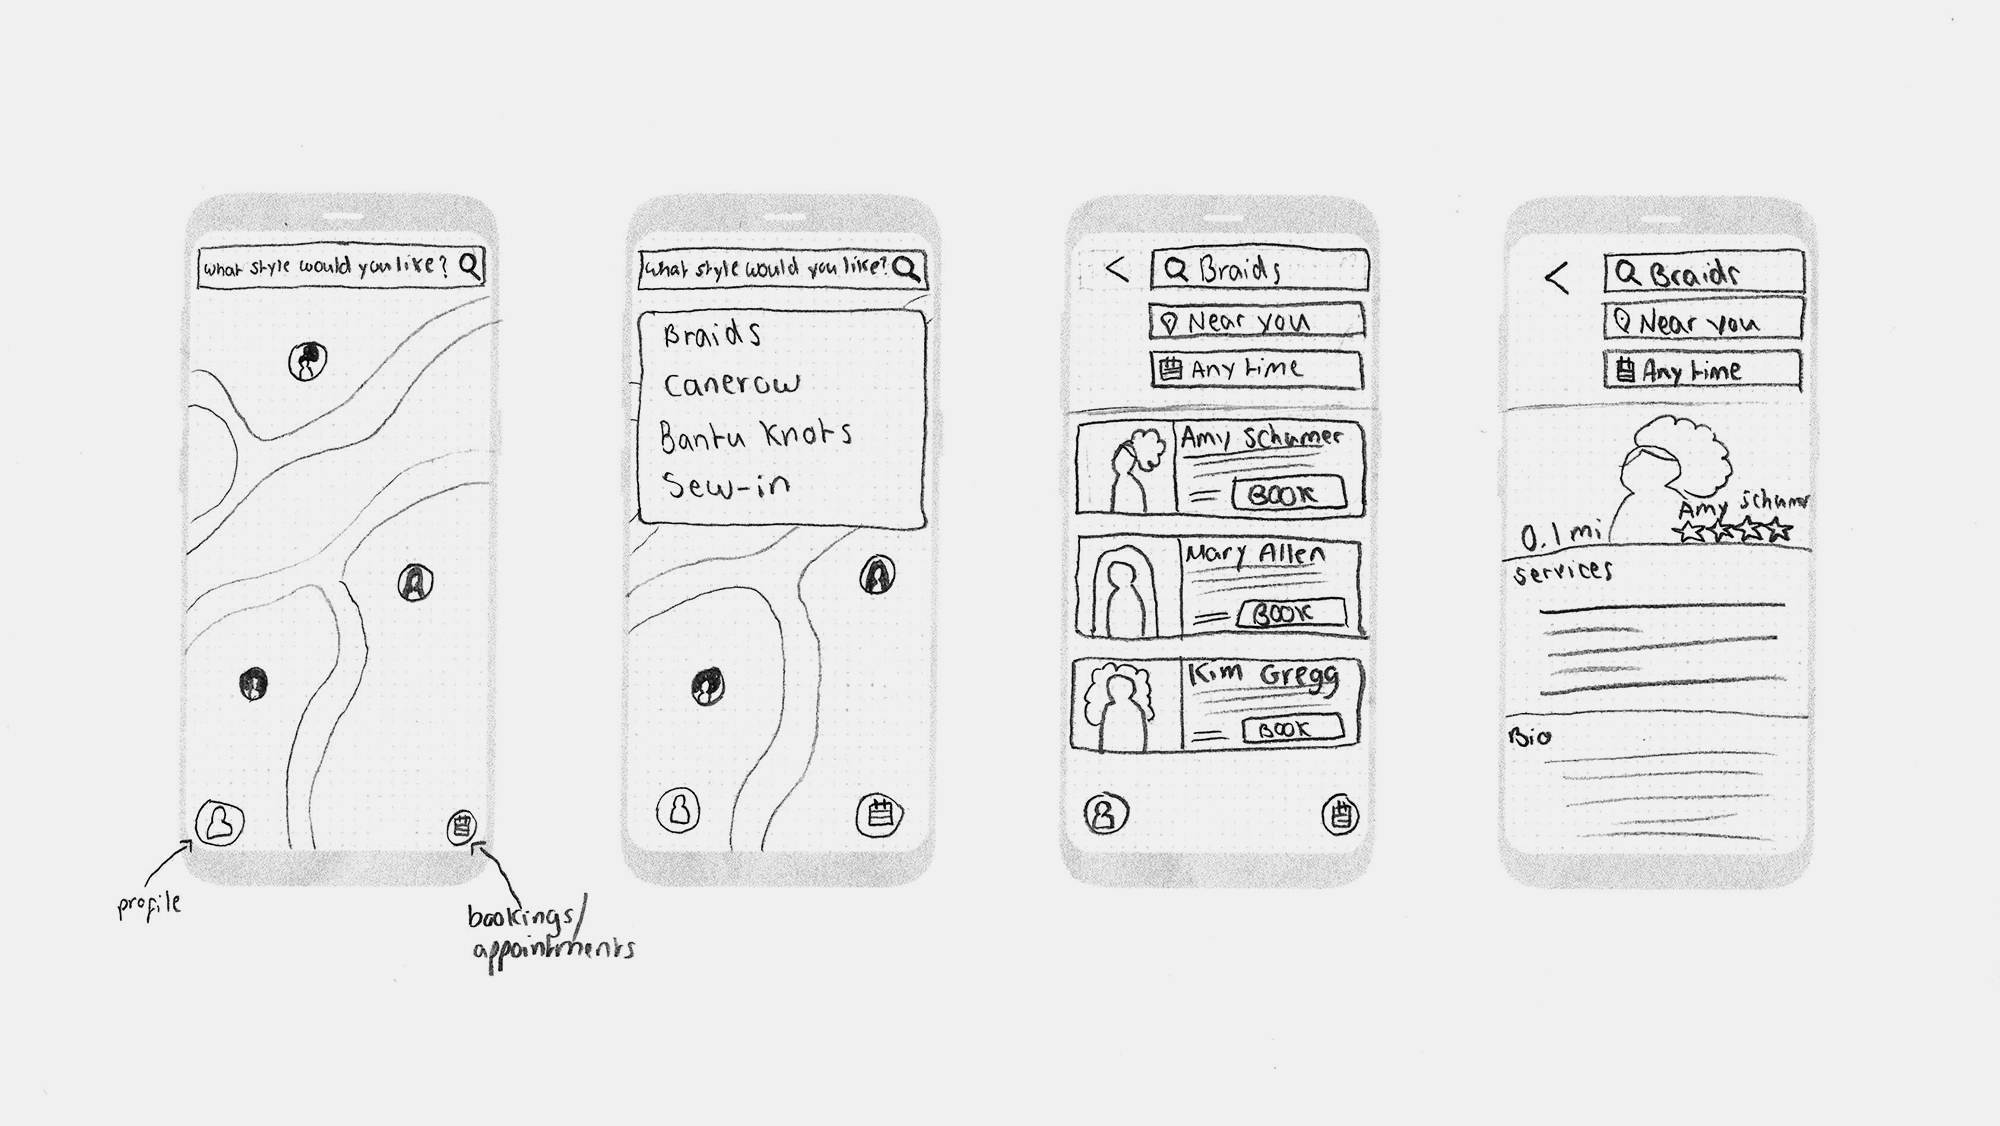 what style would you like?
profile
bookings/
appointments
what style would you like?
Braids
Canerow
Bantu Knots
Sew-in
Braids
Near you
Any time
Amy Schumer
BOOK
Mary Allen
BOOK
Kim Gregg
BOOK
Braids
Near you
Any time
Amy Schumer
0.1 mi
services
Bio